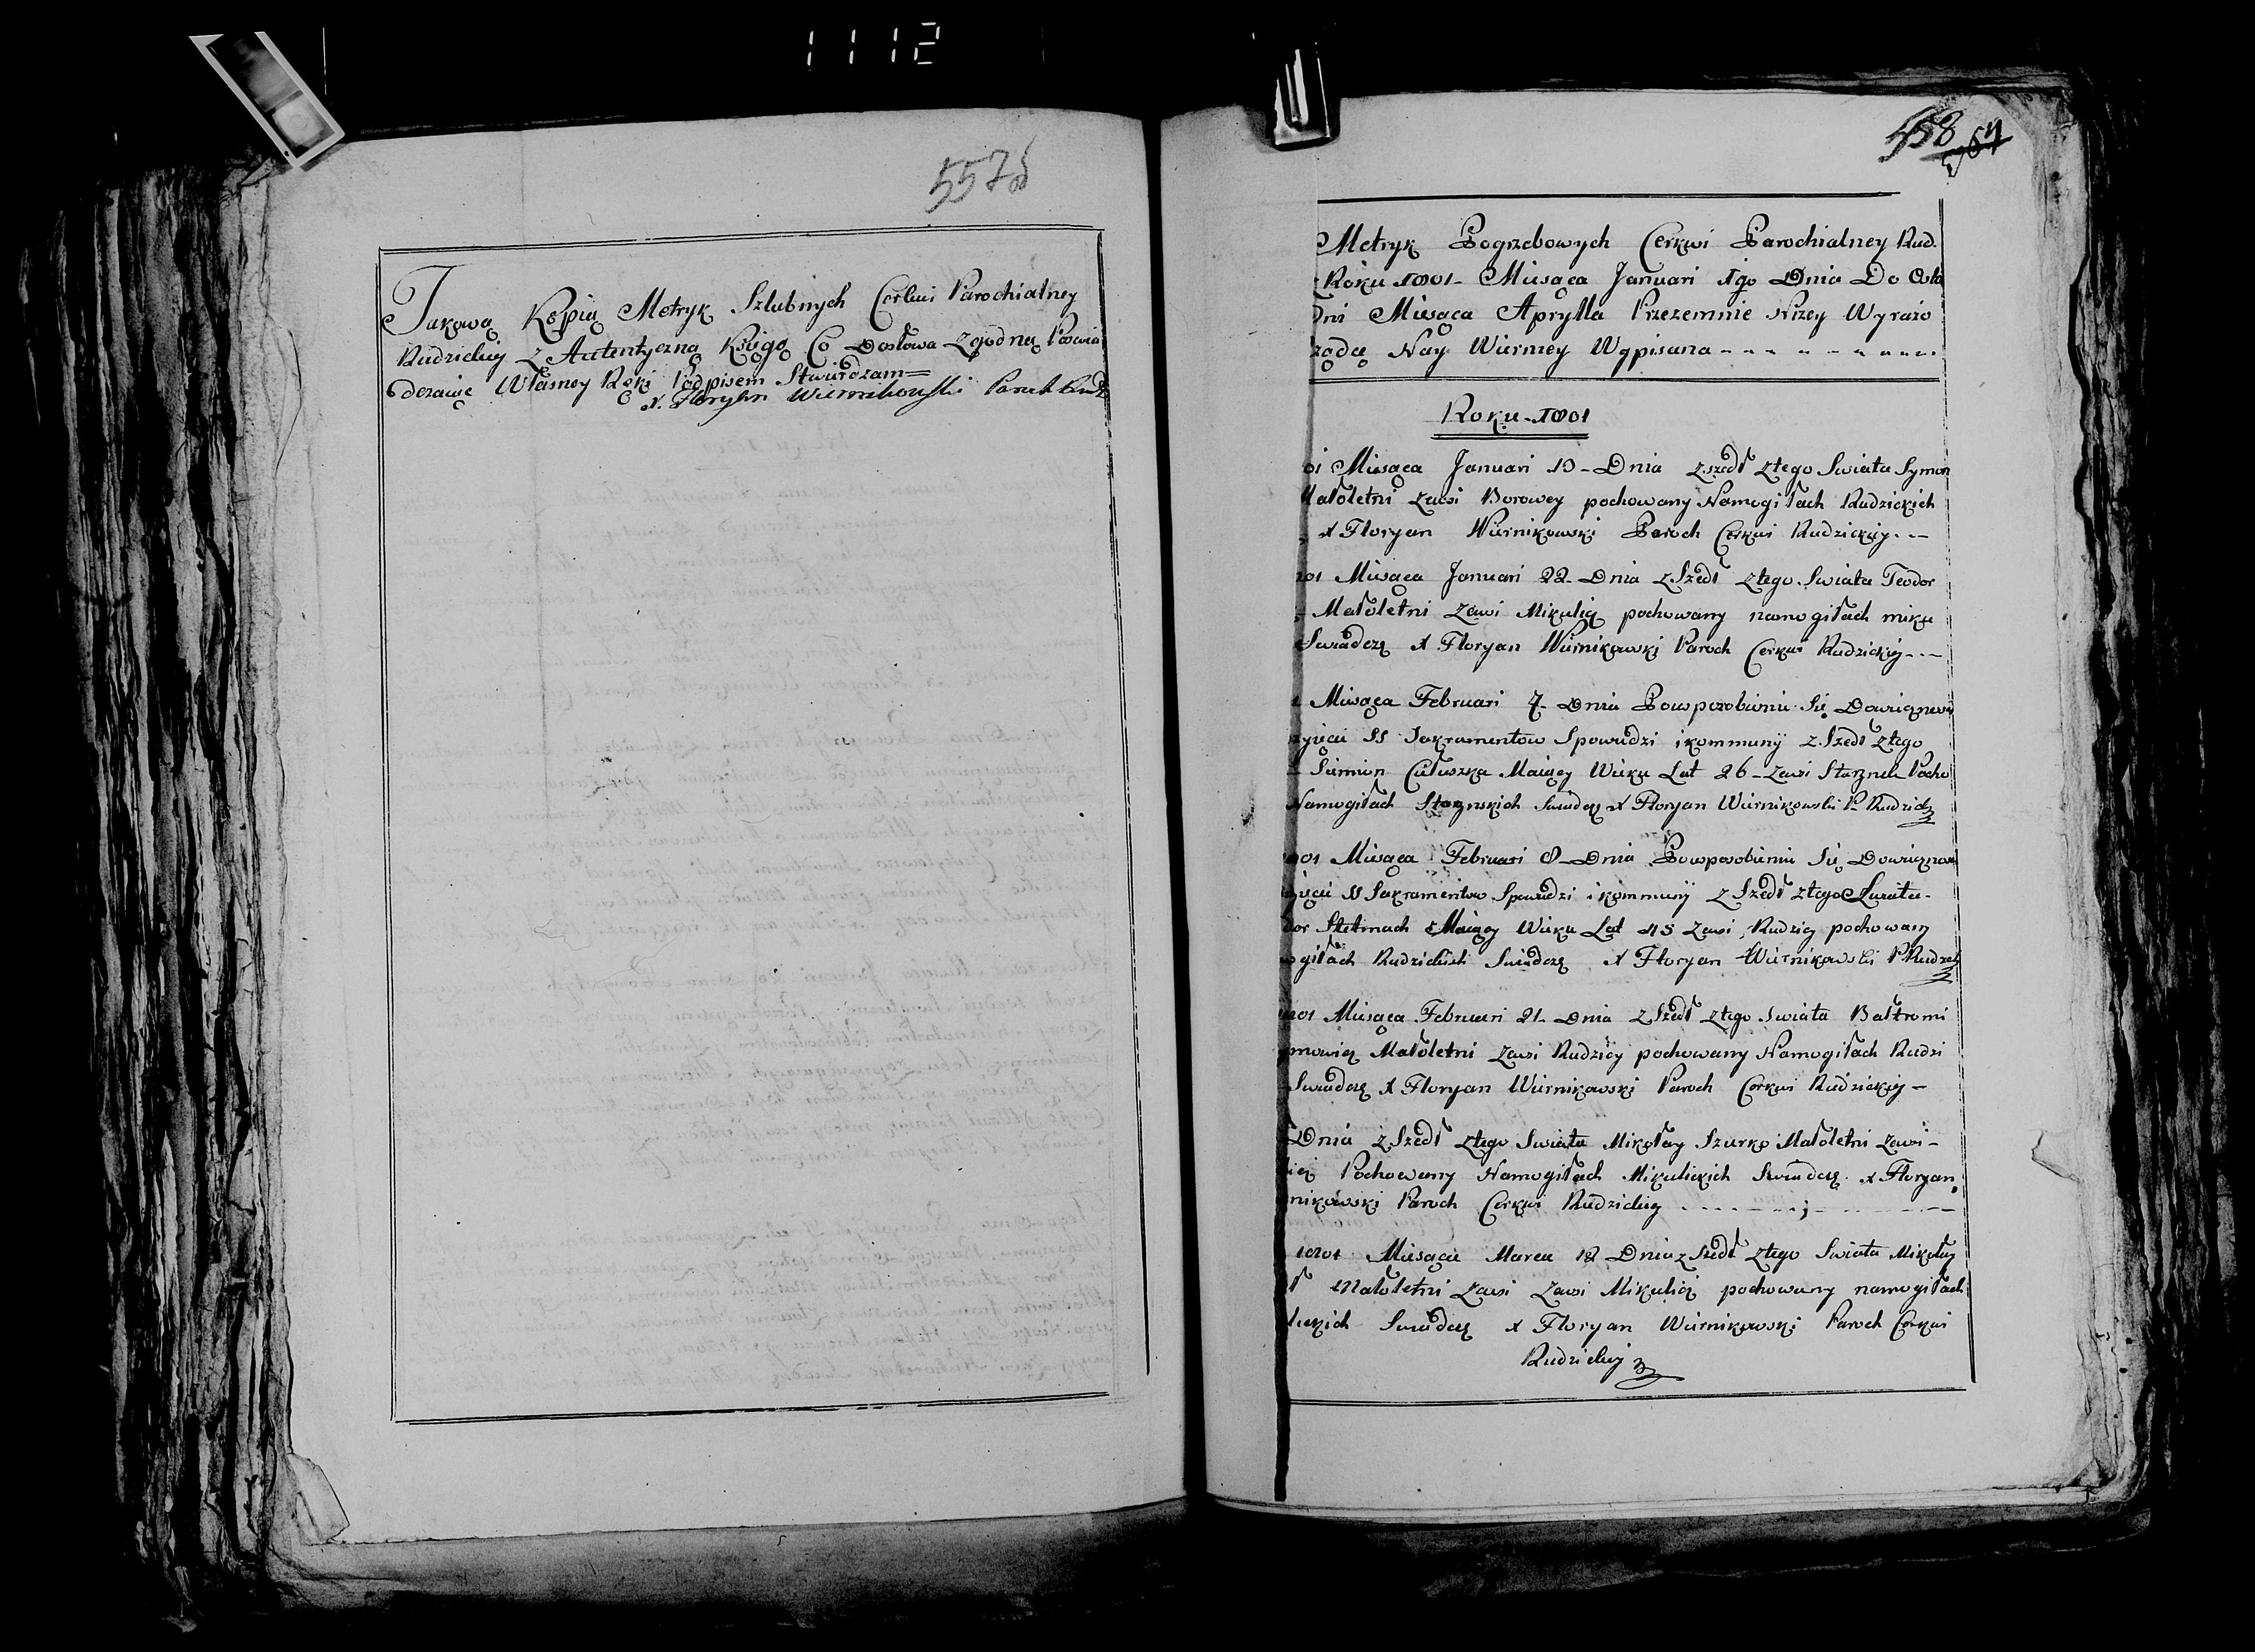 1112
557об
Jakową Kopią Metryk Szlubnych Cerkwi Parochialney
Rudzickiey z Autentyczną Księgą Co Dosłowa Zgodną Poświa
dczaiąc Własney Ręki Podpisem Stwierdzam=
X. Floryan Wiernikowski Paroch Rudz
558
Metryk Pogrzebowych Cerkwi Parochialney Rud.
Roku 1801 Miesąca Januari 1go Dnia Do Osta
Dni Miesąca Aprylla Przezemnie Nizey Wyrażo
Nay Wierniey Wypisana
Roku 1801
01 Miesąca Januari 19 Dnia zszedł ztego Swiata Symon
Małoletni zewsi Borowey pochowany Namogiłach Rudzickich
X Floryan Wiernikowski Paroch Cerkwi Rudzickiey
Miesąca Januari 22 Dnia zszedł ztego Swiata Teodor
Małoletni zewsi Mikulicz pochowany namogiłach miku
Swiadczę X Floryan Wiernikowski Paroch Cerkwi Rudzickiey
Miesąca Februari 7 Dnia
SS Sakramentow Spowiedzi ikommunij zszedł ztego
Siemion Maiący Wieku Lat 26 zewsi Pocho
Namogiłach Swiadczę X Floryan Wiernikowski P. Rudzick
Miesąca Februari 8 Dnia
SS Sakramentow Spowiedzi ikommunij zszedł ztego Swiata
Stelmach Maiący Wieku Lat 45 zewsi Rudzicy pochowany
giłach Rudzickich Swiadczę X Floryan Wiernikowski P Rudzick
Miesąca Februari 21 Dnia zszedł ztego Swiata Bałtromi
mowicz Małoletni zewsi Rudzicy pochowany Namogiłach Rudzi
Swiadczę X Floryan Wiernikowski Paroch Cerkwi Rudzickiey
Dnia zszedł ztego Swiata Mikołay Szurko Małoletni zewsi
Pochowany Namogiłach Mikulickich Swiadczę X Floryan
nikowski Paroch Cerkwi Rudzickiey
1801 Miesąca Marca 12 Dnia zszedł ztego Swiata Mikołay
Małoletni zewsi zewsi Mikulicz pochowany namogiłach
lickich Swiadczę X Floryan Wiernikowski Paroch Cerkwi
Rudzickiey